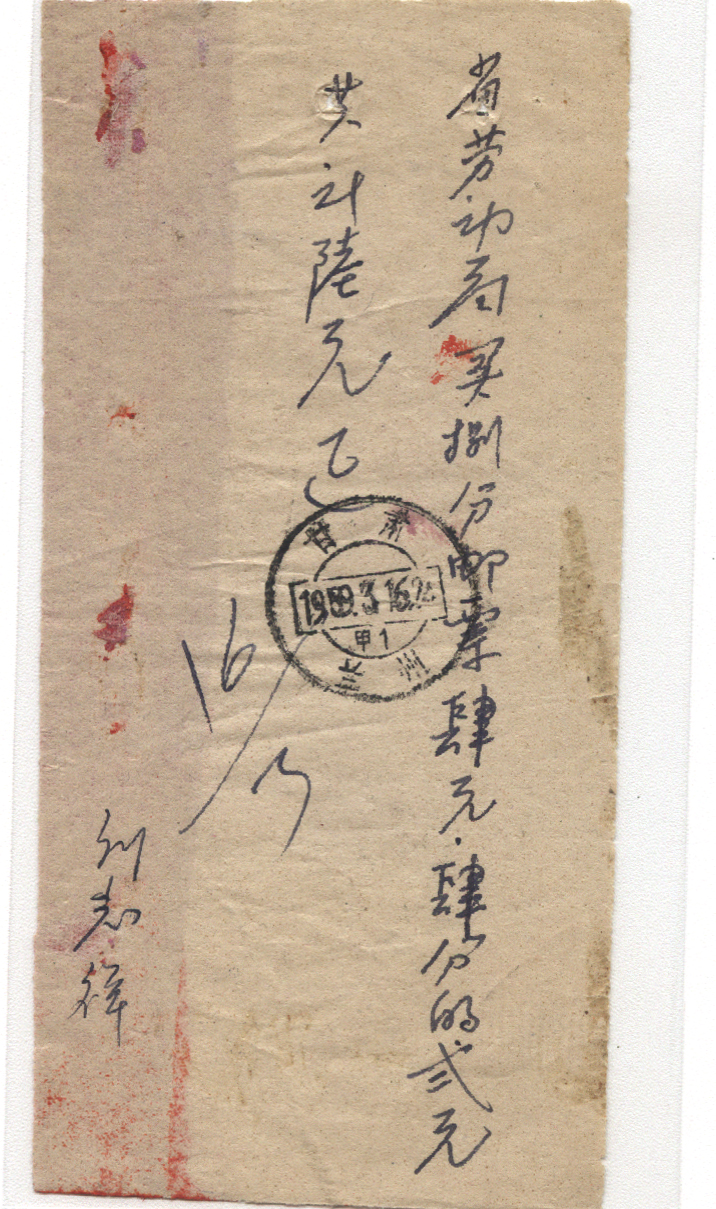 省劳动局买捌分邮票肆元.肆分的弍元
共计陆元正
16/3
甘肃
19 3.16.
甲1
兰州
刘志祥